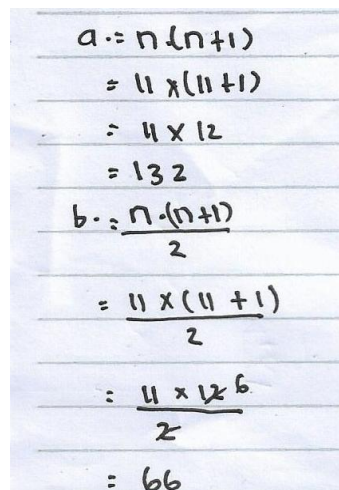 a.= n.(n+1)
= 11 x (11+1)
= 11 x 12
= 132
b. = n.(n+1)
2
= 11 x (11 + 1)
2
= 11 x 12 6
2
= 66